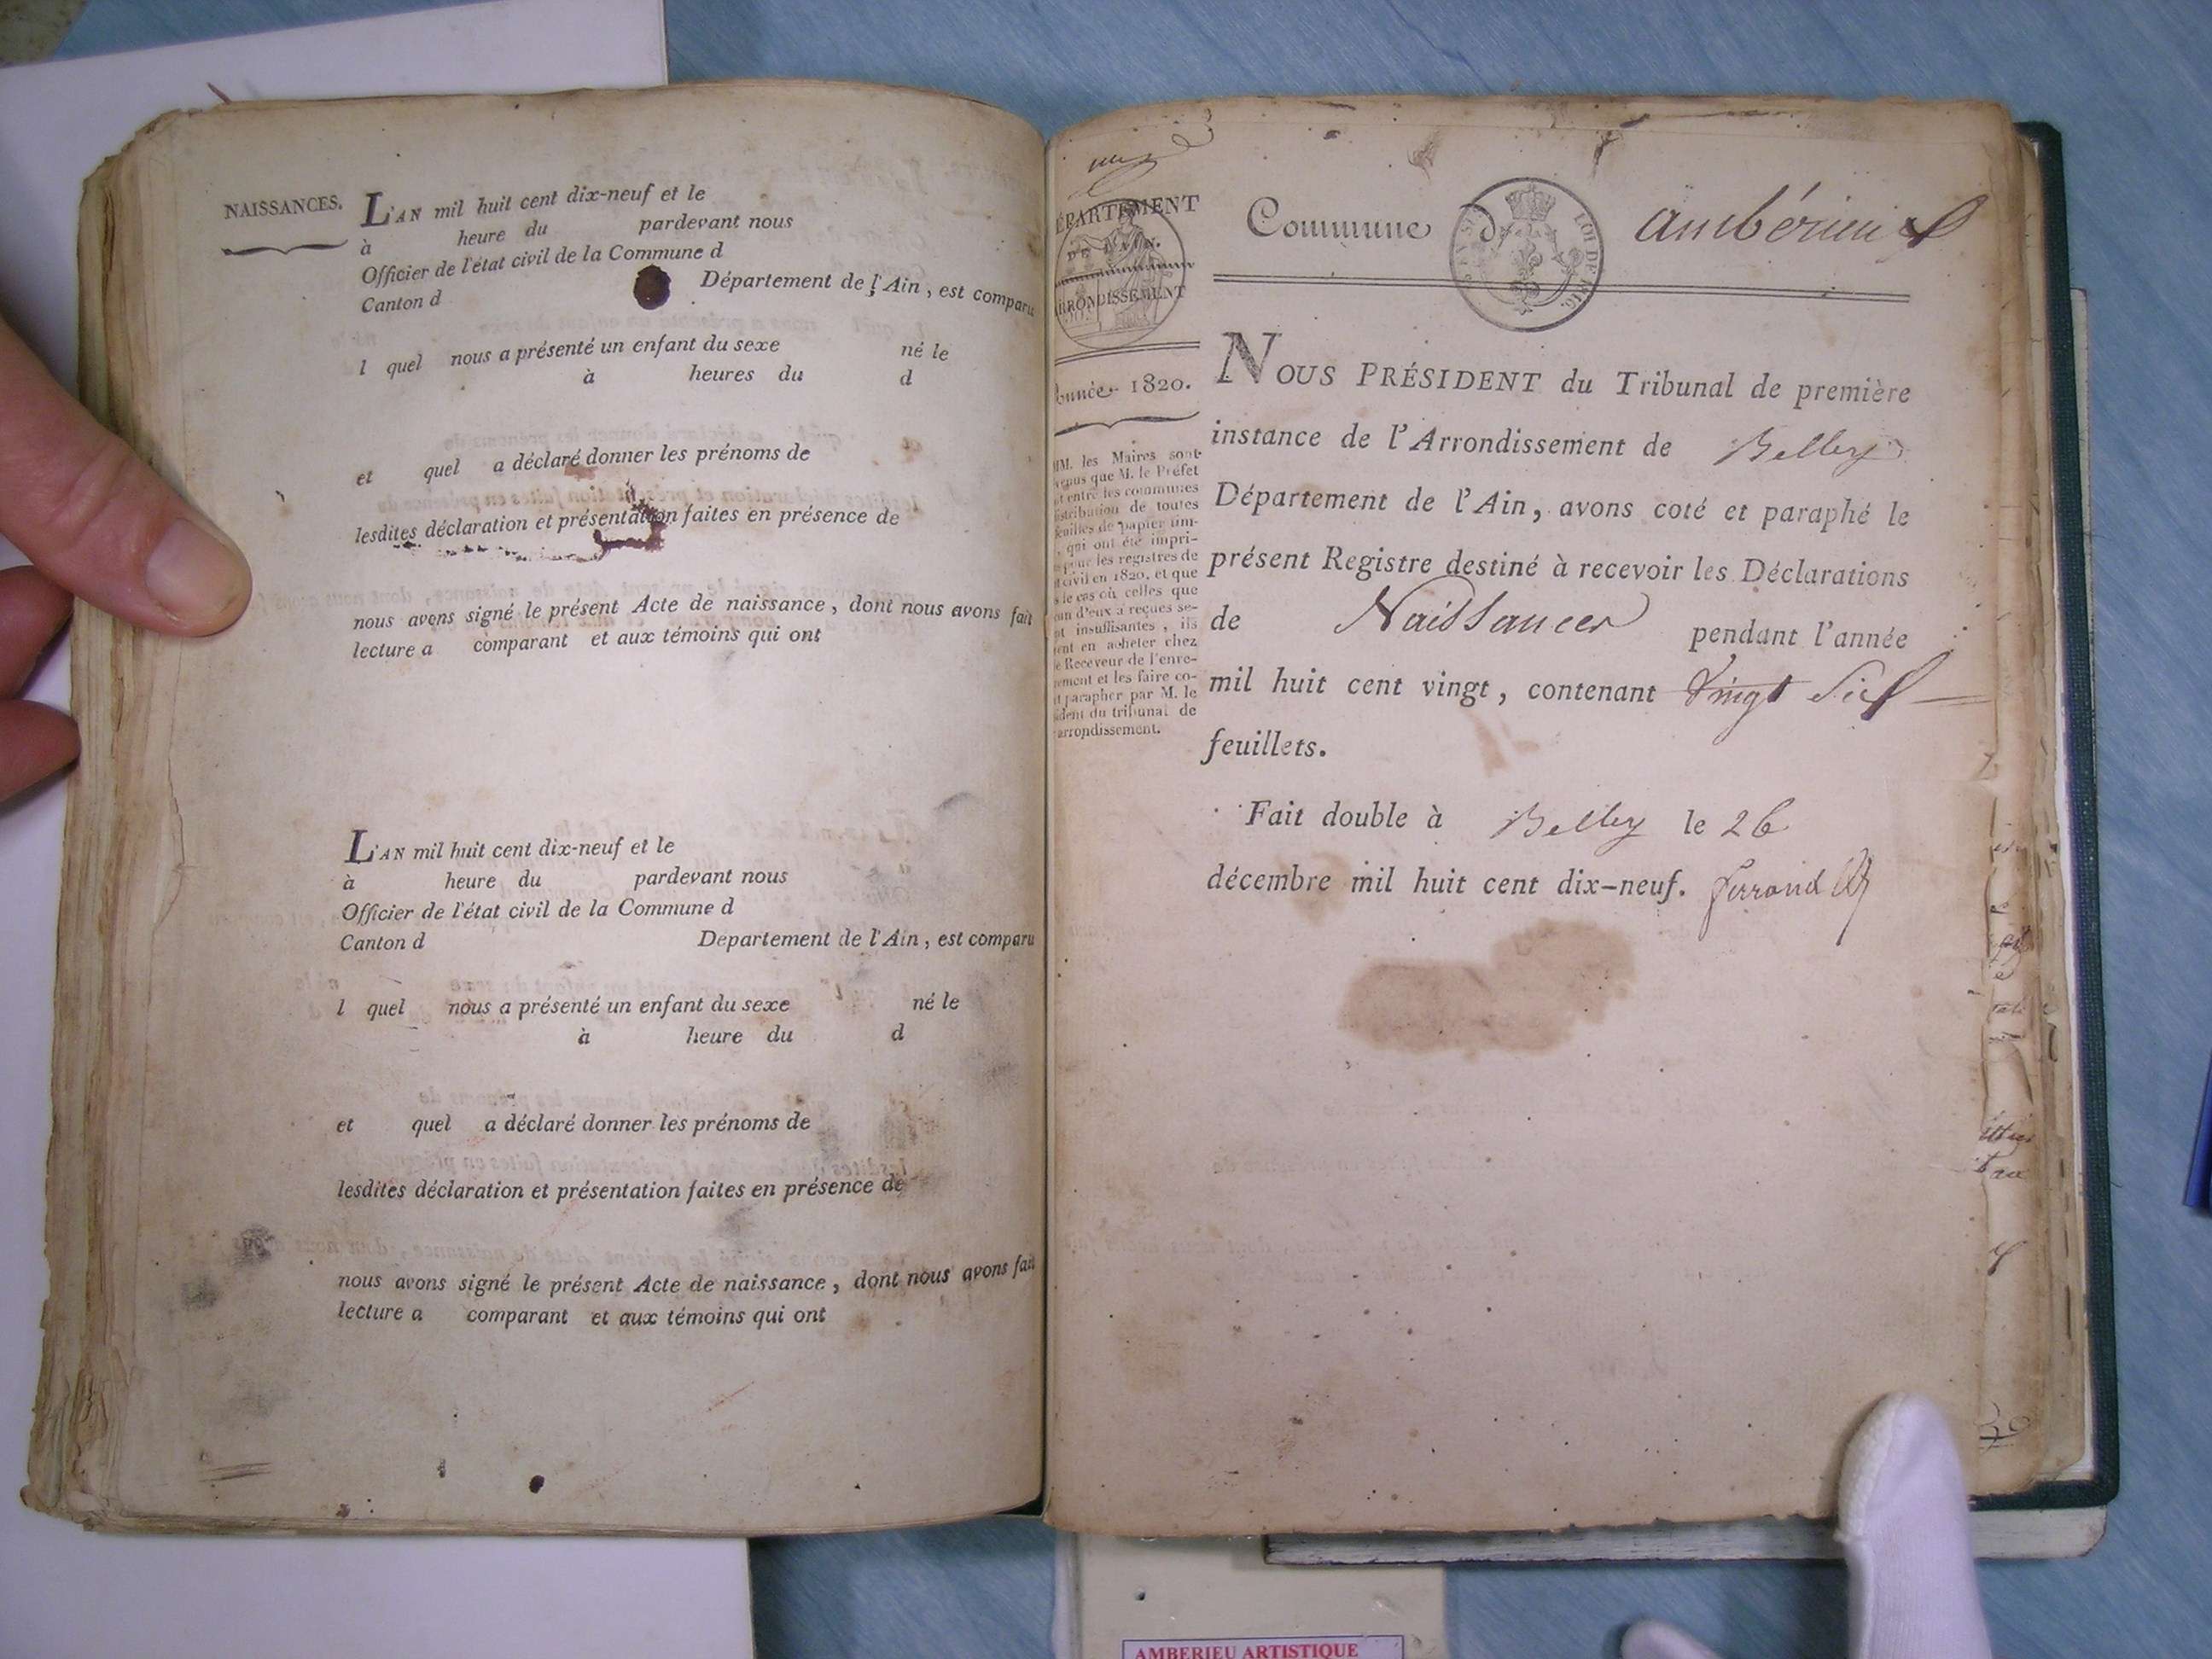 NAISSANCES.
L'AN mil huit cent dix-neuf et le
à heure du pardevant nous
Officier de l'état civil de la Commune d
Canton d Département de l'Ain, est comparu
l quel nous a présenté un enfant du sexe né le
à heures du d
et quel a déclaré donner les prénoms de
lesdites déclaration et présentation faites en présence de
nous avons signé le présent Acte de naissance, dont nous avons fait
lecture a comparant et aux témoins qui ont
L'AN mil huit cent dix-neuf et le
à heure du pardevant nous
Officier de l'état civil de la Commune d
Canton d Departement de l'Ain, est comparu
l quel nous a présenté un enfant du sexe né le
à heure du d
et quel a déclaré donner les prénoms de
lesdites déclaration et présentation faites en présence de
nous avons signé le présent Acte de naissance, dont nous avons fait
lecture a comparant et aux témoins qui ont
ÉPARTEMENT
DE L'AIN.
ARRONDISSEMENT
Année 1820.
MM. les Maires sont
venus que M. le Préfet
entre les communes
distribution de toutes
feuilles de papier tim-
qui ont été impri-
pour les registres de
civil en 1820, et que
le cas où celles que
un d'eux a reçues se-
insuffisantes, ils
en acheter chez
le Receveur de l'enre-
ment et les faire co-
parapher par M. le
dent du tribunal de
arrondissement.
Commune d ambérieux
NOUS PRÉSIDENT du Tribunal de première
instance de l'Arrondissement de Belley
Département de l'Ain, avons coté et paraphé le
présent Registre destiné à recevoir les Déclarations
de Naissances pendant l'année
mil huit cent vingt, contenant Vingt Six
feuillets.
Fait double à Belley le 26
décembre mil huit cent dix-neuf. Ferrand
AMBERIEU ARTISTIQUE